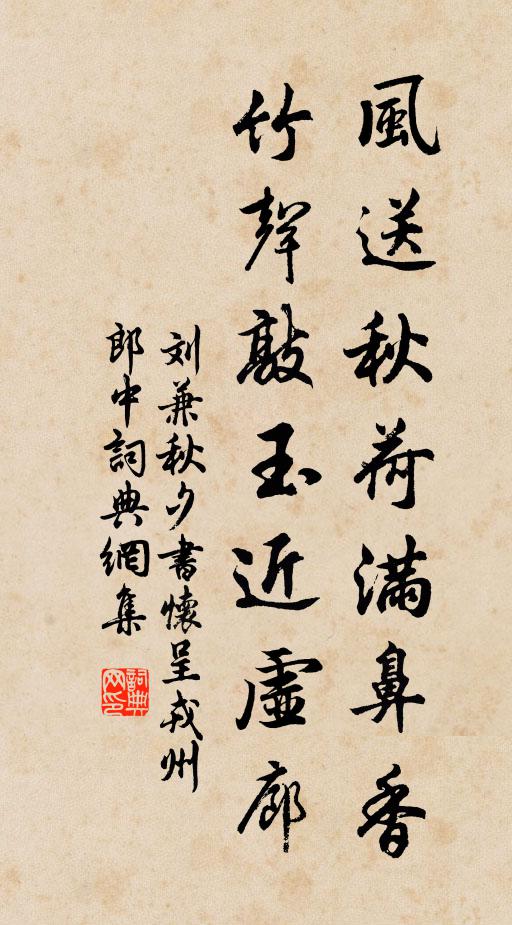 風送秋荷滿鼻香
竹聲敲玉近虛廊
刘兼秋夕書懷呈戎州
郎中詞典網集
詞典網印